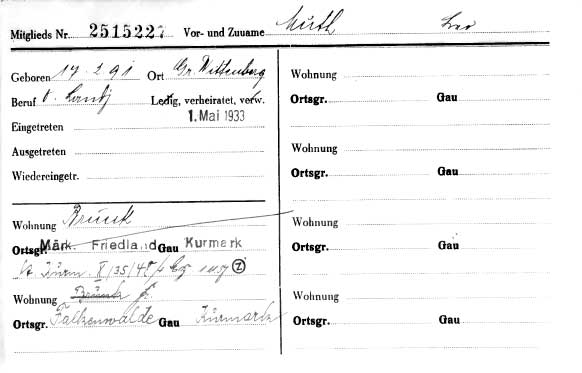 Mitglieds Nr. 2515227 Vor- und Zuname Muth Leo
Geboren 17.2.91 Ort Gr. Wittenberg
Beruf Ledig, verheiratet, verw.
Eingetreten 1. Mai 1933
Ausgetreten
Wiedereingetr.
Wohnung Brunk
Ortsgr. Märk. Friedland Gau Kurmark
Lt. Kurm. X/35/45
Wohnung Brunk
Ortsgr. Falkenwalde Gau Kurmark
Wohnung
Ortsgr. Gau
Wohnung
Ortsgr. Gau
Wohnung
Ortsgr. Gau
Wohnung
Ortsgr. Gau